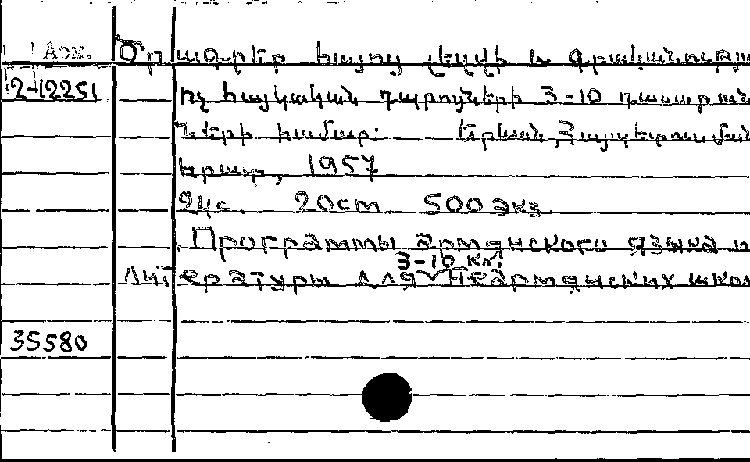 Арм. Ծրագրեր հայոց լեզվի և գրականությա
2-12251 ոչ հայկական դպրոցների 3-10 դասարան
ների համար: Երևան, Հայպետուսման
հրատ, 1957
24с. 20cm 500 экз.
Программы армянского языка и
3-10 кл.
литературы для неармянских школ
35580